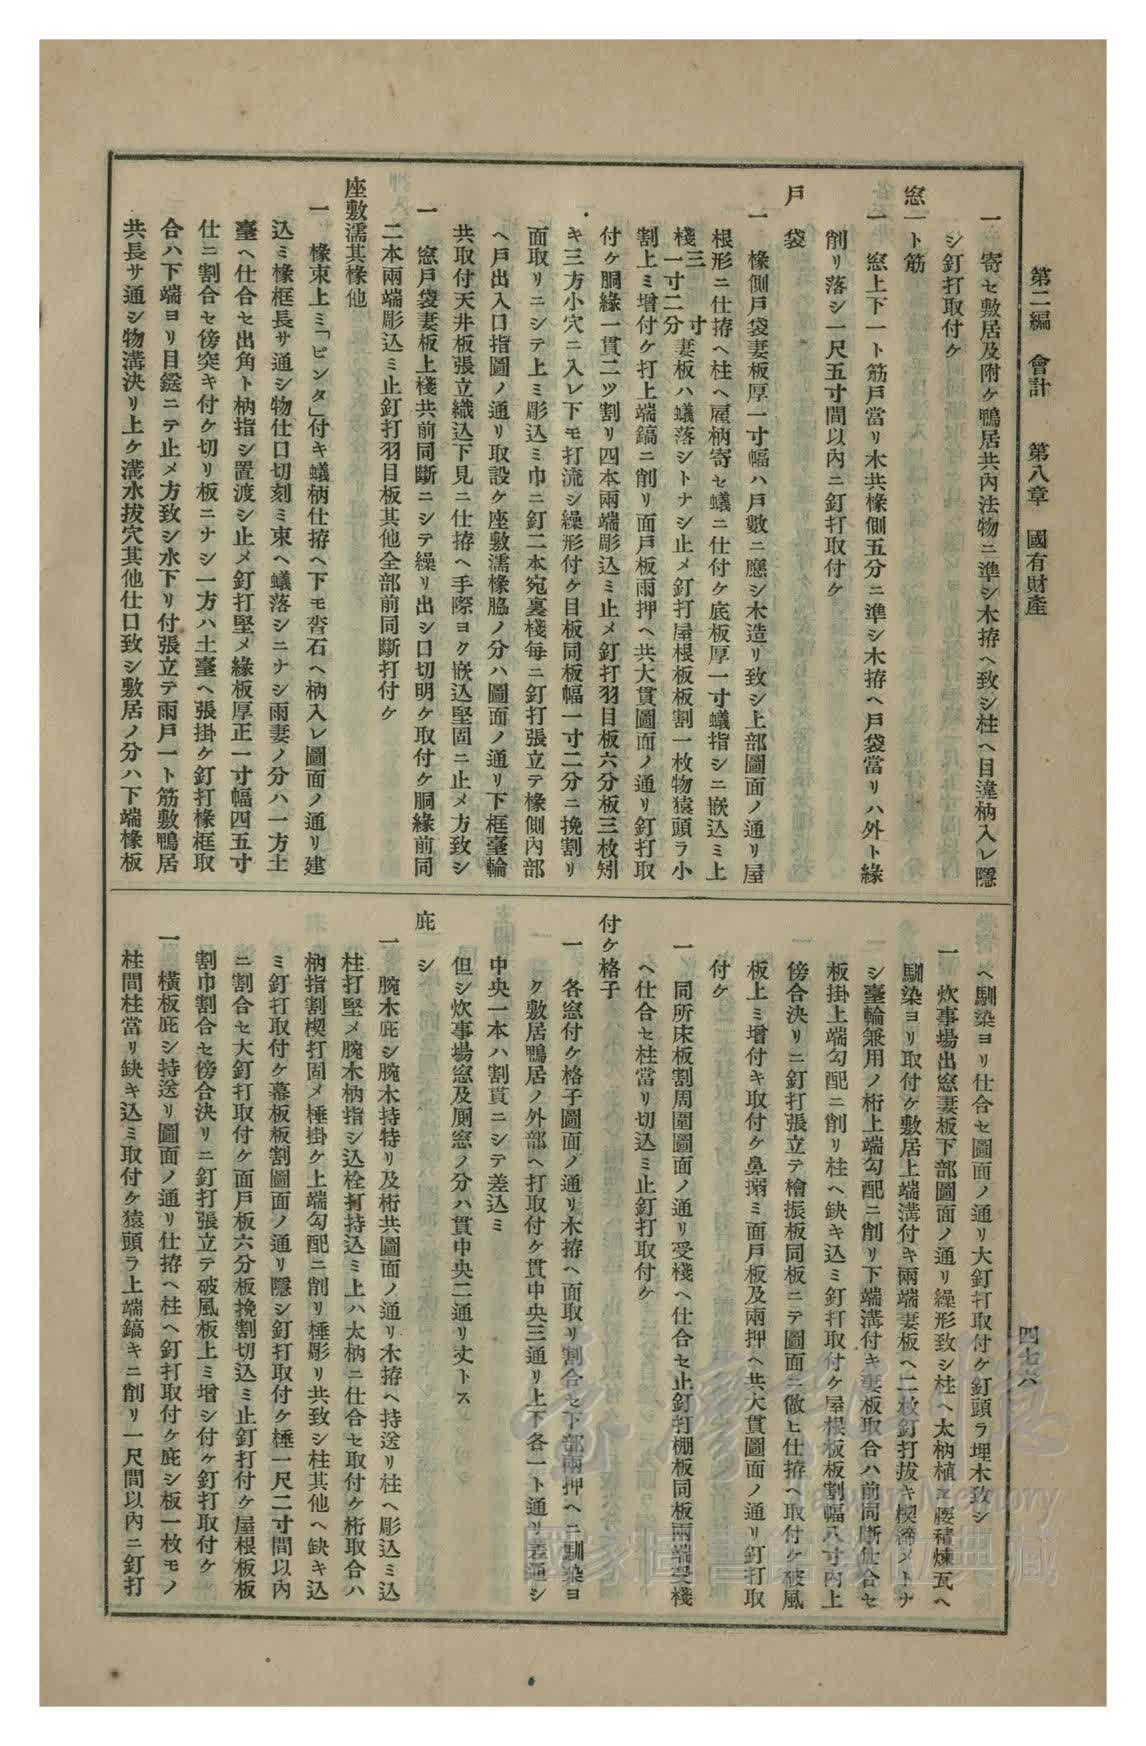 第二編　會計　　第八章　國有財產
四七六
一　寄セ敷居及附ケ鴨居共內法物ニ準シ木拵ヘ致シ柱ヘ目違枘入レ隱
シ釘打取付ケ
窓一ト筋
一　窓上下一ト筋戶當リ木共椽側五分ニ準シ木拵ヘ戶袋當リハ外ト緣
削リ落シ一尺五寸間以內ニ釘打取付ケ
戶　袋
一　椽側戶袋妻板厚一寸幅ハ戶數ニ應シ木造リ致シ上部圖面ノ通リ屋
根形ニ仕拵ヘ柱ヘ雇枘寄セ蟻ニ仕付ケ底板厚一寸蟻指シニ嵌込ミ上
棧三寸一寸二分妻板ハ蟻落シトナシ止メ釘打屋根板板割一枚物猿頭ラ小
割上ミ增付ケ打上端鎬ニ削リ面戶板雨押ヘ共大貫圖面ノ通リ釘打取
付ケ胴緣一貫二ツ割リ四本兩端彫込ミ止メ釘打羽目板六分板三枚矧
キ三方小穴ニ入レ下モ打流シ繰形付ケ目板同板幅一寸二分ニ挽割リ
面取リニシテ上ミ彫込ミ巾ニ釘二本宛裏棧每ニ釘打張立テ椽側內部
ヘ戶出入口指圖ノ通リ取設ケ座敷濡椽脇ノ分ハ圖面ノ通リ下框臺輪
共取付天井板張立織込下見ニ仕拵ヘ手際ヨク嵌込堅固ニ止メ方致シ
一　窓戶袋妻板上棧共前同斷ニシテ繰リ出シ口切明ケ取付ケ胴緣前同
二本兩端彫込ミ止釘打羽目板其他全部前同斷打付ケ
座敷濡其椽他
一　椽束上ミ「ピンタ」付キ蟻枘仕拵ヘ下モ沓石ヘ枘入レ圖面ノ通リ建
込ミ椽框長サ通シ物仕口切刻ミ束ヘ蟻落シニナシ雨妻ノ分ハ一方土
臺ヘ仕合セ出角ト枘指シ置渡シ止メ釘打堅メ緣板厚正一寸幅四五寸
仕ニ割合セ傍突キ付ケ切リ板ニナシ一方ハ土臺ヘ張掛ケ釘打椽框取
合ハ下端ヨリ目鎹ニテ止メ方致シ水下リ付張立テ雨戶一ト筋敷鴨居
共長サ通シ物溝決リ上ケ溝水拔穴其他仕口致シ敷居ノ分ハ下端椽板
ヘ馴染ヨリ仕合セ圖面ノ通リ大釘打取付ケ釘頭ラ埋木致シ
一　炊事場出窓妻板下部圖面ノ通リ繰形致シ柱ヘ太枘植ヱ腰積煉瓦ヘ
馴染ヨリ取付ケ敷居上端溝付キ兩端妻板ヘ二枚釘打拔キ楔締メトナ
シ臺輪兼用ノ桁上端勾配ニ削リ下端溝付キ妻板取合ハ前同斷仕合セ
板掛上端勾配ニ削リ柱ヘ缺キ込ミ釘打取付ケ屋根板板割幅八寸內上
傍合決リニ釘打張立テ檜振板同板ニテ圖面ニ倣ヒ仕拵ヘ取付ケ破風
板上ミ增付キ取付ケ鼻搦ミ面戶板及雨押ヘ共大貫圖面ノ通リ釘打取
付ケ
一　同所床板割周圍圖面ノ通リ受棧ヘ仕合セ止釘打棚板同板兩端受棧
ヘ仕合セ柱當リ切込ミ止釘打取付ケ
付ケ格子
一　各窓付ケ格子圖面ノ通リ木拵ヘ面取リ割合セ下部雨押ヘニ馴染ヨ
ク敷居鴨居ノ外部ヘ打取付ケ貫中央三通リ上下各一ト通リ差通シ
中央一本ハ割貫ニシテ差込ミ
但シ炊事場窓及厠窓ノ分ハ貫中央二通リ丈トス
庇　シ
一　腕木庇シ腕木持特リ及桁共圖面ノ通リ木拵ヘ持送リ柱ヘ彫込ミ込
柱打堅メ腕木枘指シ込栓打持込ミ上ハ太枘ニ仕合セ取付ケ桁取合ハ
枘指割楔打固メ棰掛ケ上端勾配ニ削リ棰彫リ共致シ柱其他ヘ缺キ込
ミ釘打取付ケ幕板板割圖面ノ通リ隱シ釘打取付ケ棰一尺二寸間以內
ニ割合セ大釘打取付ケ面戶板六分板挽割切込ミ止釘打付ケ屋根板板
割巾割合セ傍合決リニ釘打張立テ破風板上ミ增シ付ケ釘打取付ケ
一　橫板庇シ持送リ圖面ノ通リ仕拵ヘ柱ヘ釘打取付ケ庇シ板一枚モノ
柱間柱當リ缺キ込ミ取付ケ猿頭ラ上端鎬キニ削リ一尺間以內ニ釘打
Taiwan Memory
國家圖書館數位典藏